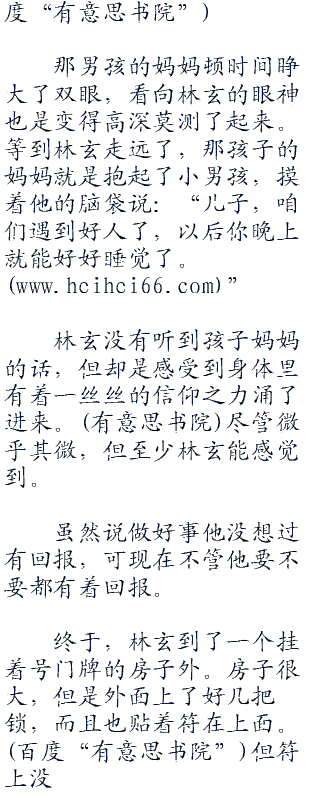 度“有意思书院”)
那男孩的妈妈顿时间睁
大了双眼，看向林玄的眼神
也是变得高深莫测了起来。
等到林玄走远了，那孩子的
妈妈就是抱起了小男孩，摸
着他的脑袋说：“儿子，咱
们遇到好人了，以后你晚上
就能好好睡觉了。
(www.hcihci66.com)”
林玄没有听到孩子妈妈
的话，但却是感受到身体里
有着一丝丝的信仰之力涌了
进来。(有意思书院)尽管微
乎其微，但至少林玄能感觉
到。
虽然说做好事他没想过
有回报，可现在不管他要不
要都有着回报。
终于，林玄到了一个挂
着号门牌的房子外。房子很
大，但是外面上了好几把
锁，而且也贴着符在上面。
(百度“有意思书院”)但符
上没